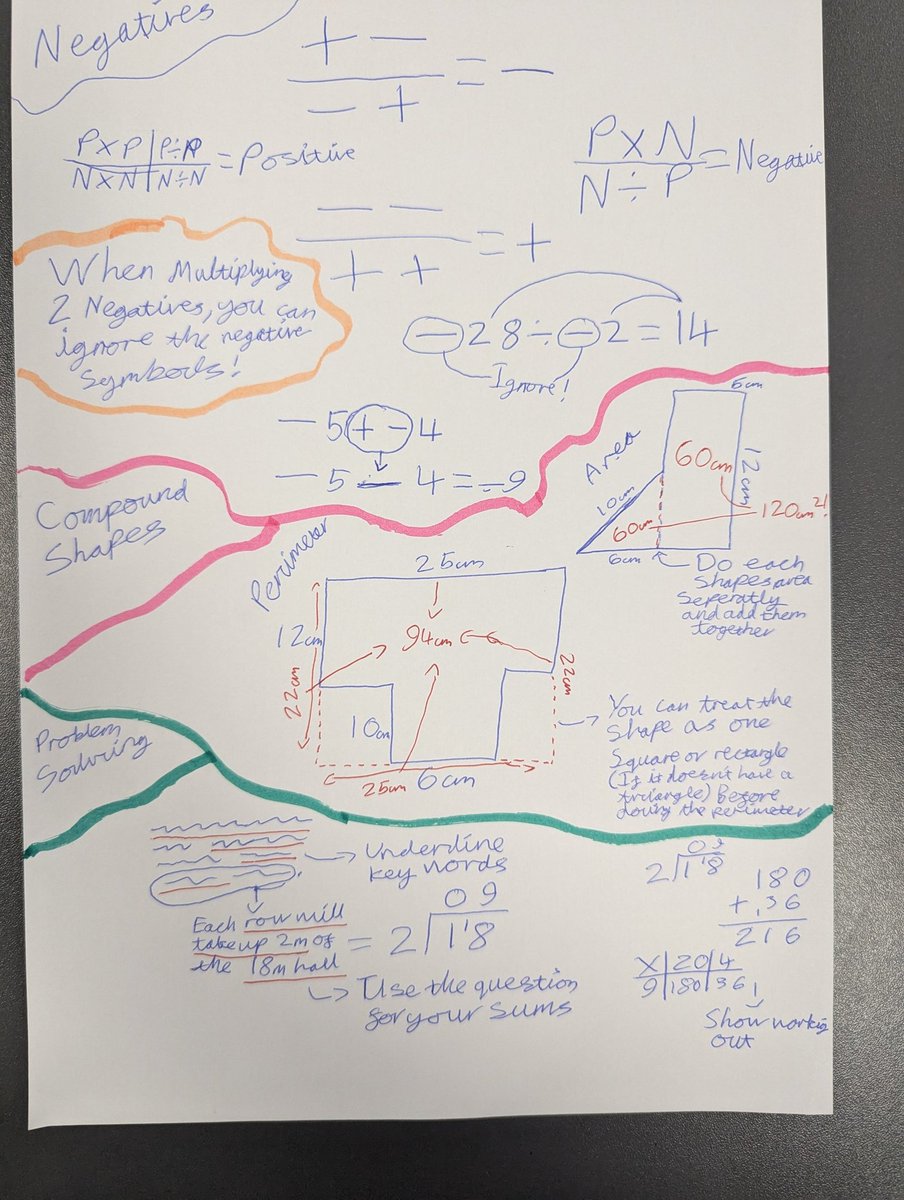 Negatives
+ −
− +
= −
P×P | P÷P
N×N | N÷N
= Positive
P × N
N ÷ P
= Negative
− −
+ +
= +
When Multiplying
2 Negatives, you can
ignore the negative
symbols!
−28÷−2=14
Ignore!
−5+−4
−5 − 4=−9
Compound
Shapes
Area
6cm
60cm
12cm
10cm
60cm
120cm²!
6cm
Do each
shapes area
seperatly
and add them
together
Perimeter
25cm
12cm
94cm
22cm
22cm
10cm
25cm
6cm
You can treat the
shape as one
square or rectangle
(If it doesn't have a
triangle) before
doing the perimeter
Problem
Solving
Underline
key words
Each row will
take up 2m of
the 18m hall
=
09
2 1'8
Use the question
for your sums
09
2 1'8
180
+ 36
216
X|20|4
9|180|36
Show working
out